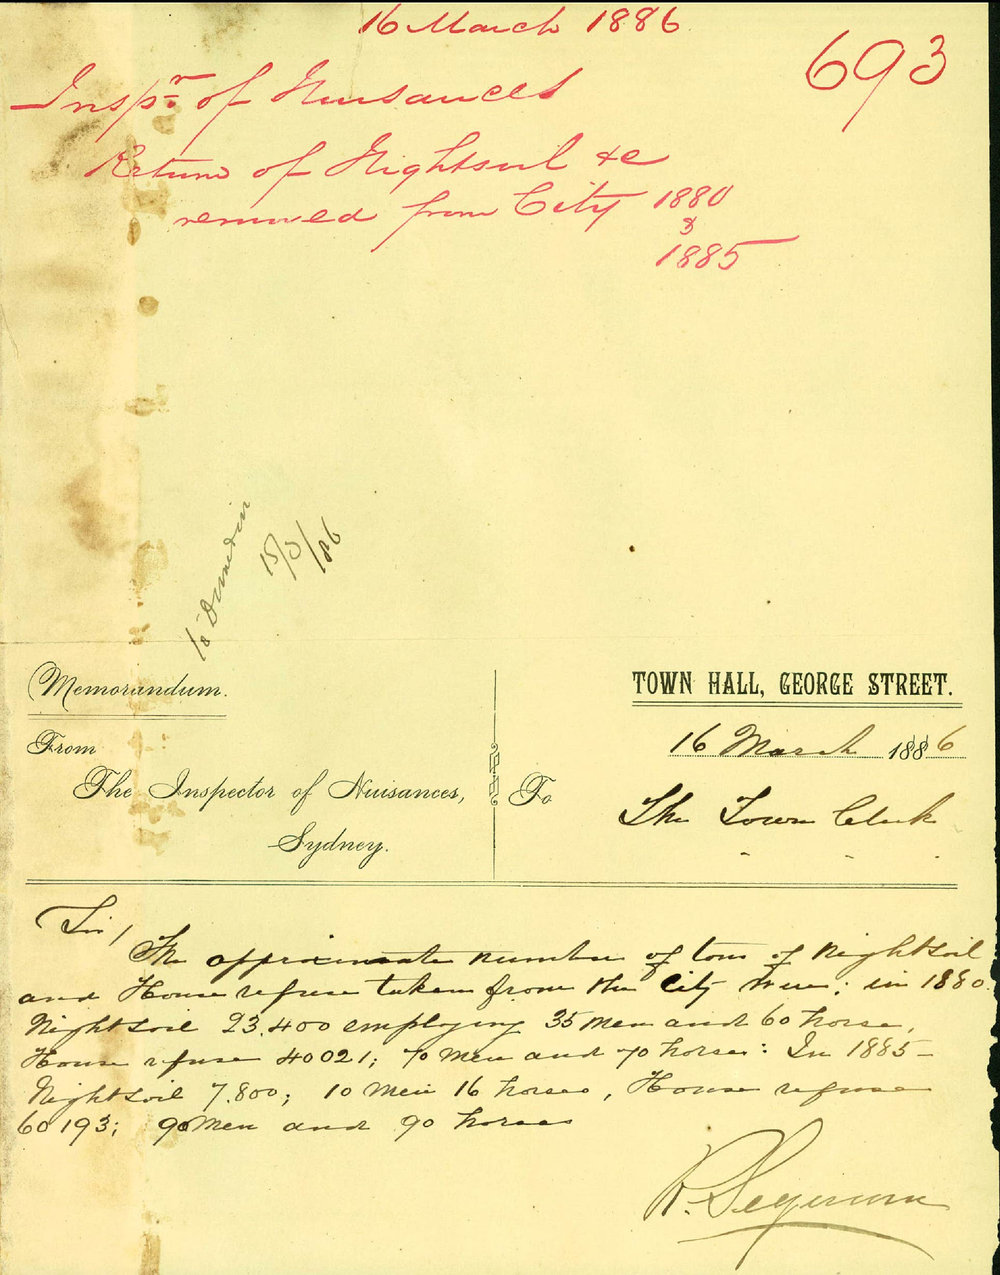 16 March 1886
693
Inspr. of Nuisances
Return of Nightsoil &c
removed from City 1880
&
1885
to Dunedin
18/3/86
Memorandum.
TOWN HALL, GEORGE STREET.
16 March 1886
From
The Inspector of Nuisances,
Sydney.
To
The Town Clerk
Sir,
The approximate number of tons of Nightsoil
and House refuse taken from the City were: in 1880.
Nightsoil 23.400 employing 35 men and 60 horse,
House refuse 40021; 70 men and 70 horses: In 1885 -
Nightsoil 7.800; 10 men 16 horses, House refuse
60193; 90 men and 90 horses
R. Seymour